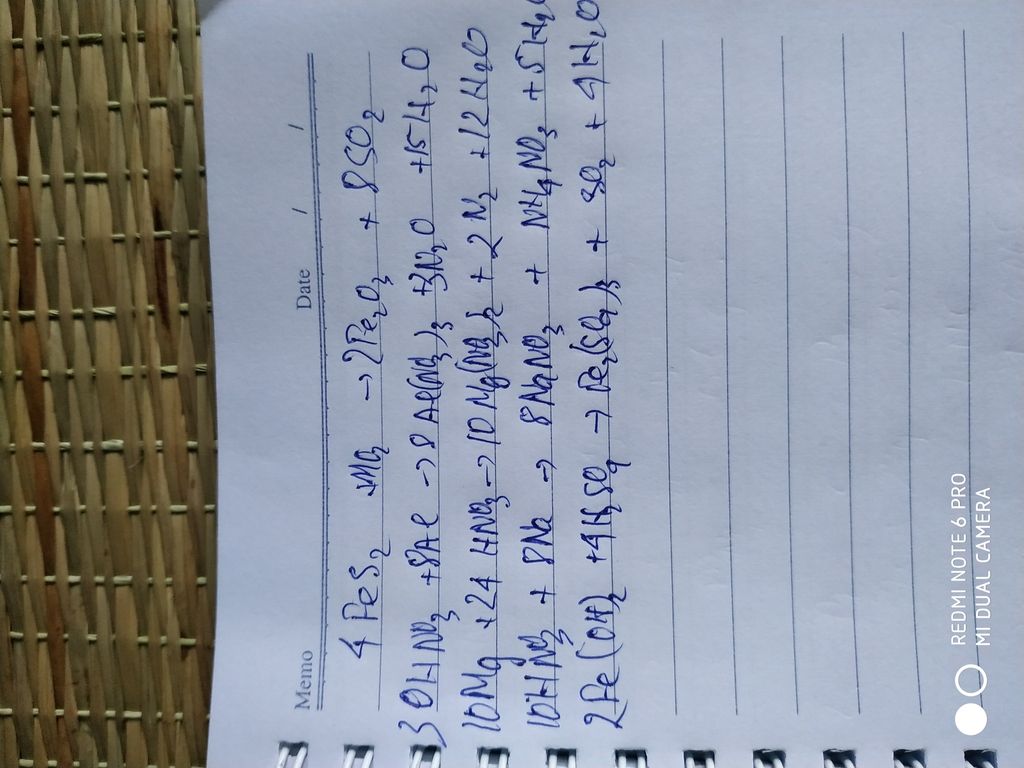 Memo Date / /
4 FeS2 + 11O2 → 2Fe2O3 + 8SO2
30HNO3 + 8Al → 8Al(NO3)3 + 3N2O + 15H2O
10Mg + 24 HNO3 → 10Mg(NO3)2 + 2N2 + 12H2O
10HNO3 + 8Na → 8NaNO3 + NH4NO3 + 5H2O
2Fe(OH)2 + 4H2SO4 → Fe2(SO4)3 + SO2 + 4H2O
REDMI NOTE 6 PRO
MI DUAL CAMERA